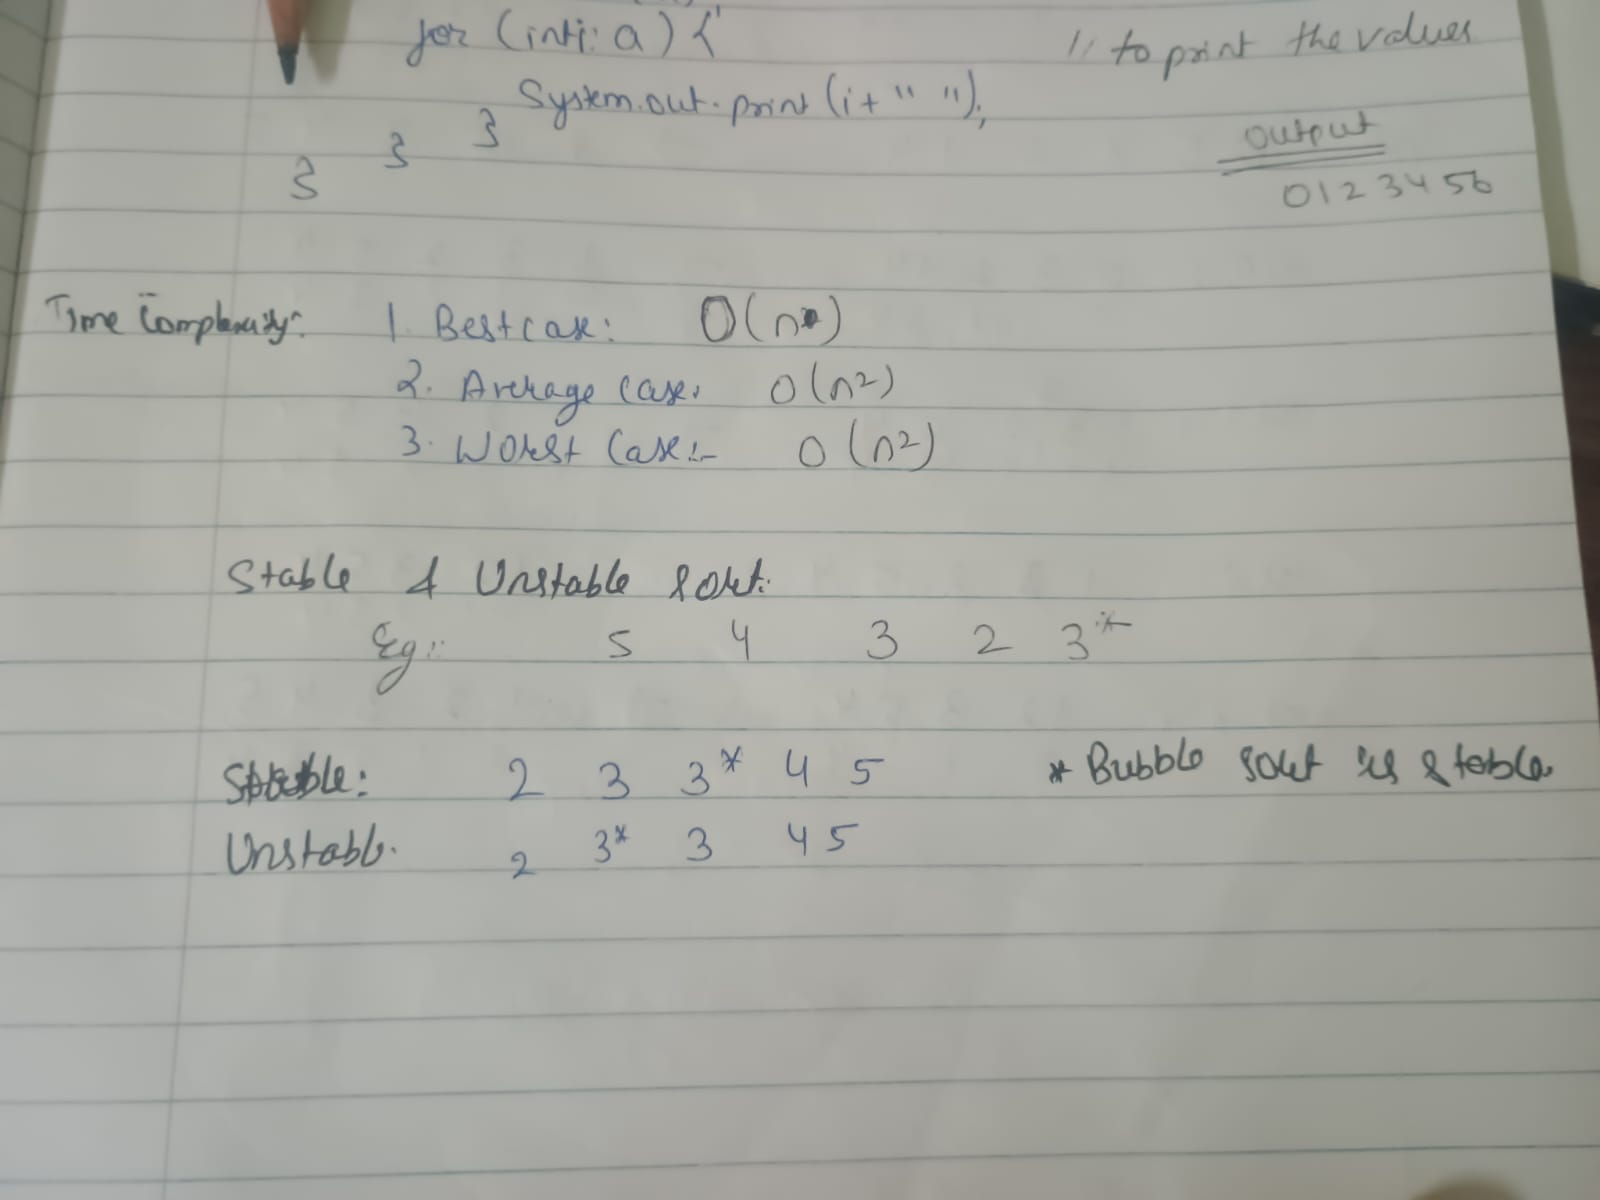 for (int i: a) { // to print the values
System.out.print(i+" ");
}
}
}
Output
0 1 2 3 4 5 6
Time Complexity: 1. Best case: O(n)
2. Average case: O(n²)
3. Worst Case:- O(n²)
Stable & Unstable sort:
Eg:- 5 4 3 2 3*
Stable: 2 3 3* 4 5 * Bubble sort is stable.
Unstable. 2 3* 3 4 5